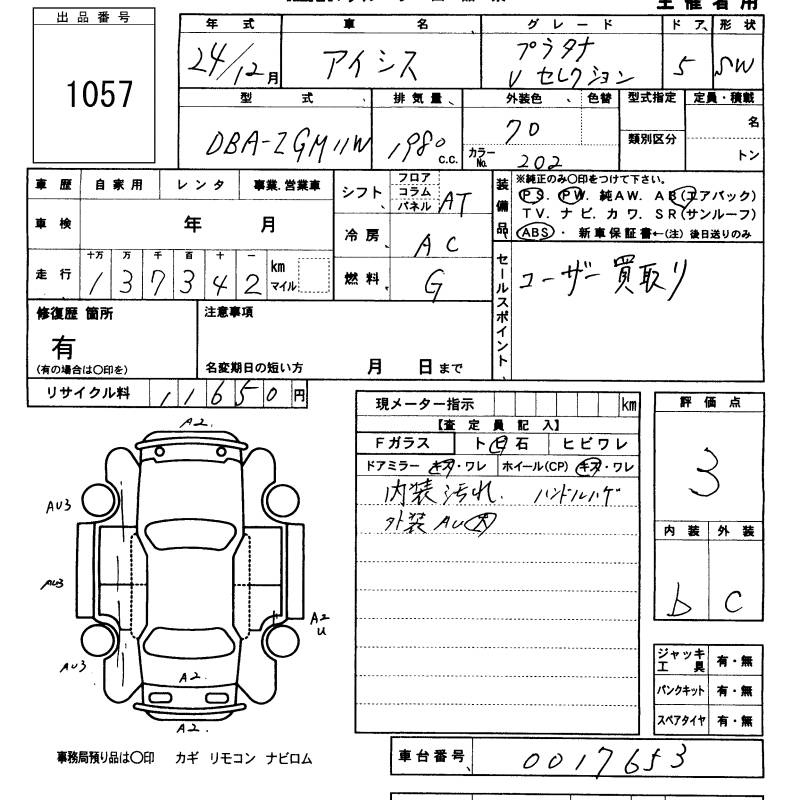 主催者用
出品番号
1057
年式 車名 グレード ドア 形状
24/12月 アイシス プラタナ Vセレクション 5 SW
型式 排気量 外装色 色替 型式指定 定員・積載
DBA-ZGM11W 1980 c.c. 70 類別区分 名
カラーNo. 202 トン
車歴 自家用 レンタ 事業.営業車
車検 年 月
走行 十万 万 千 百 十 一 km マイル
137342
シフト フロア コラム パネル AT
冷房 AC
燃料 G
装備品 ※純正のみ〇印をつけて下さい。
PS. PW. 純AW. AB(エアバック)
TV. ナビ. カワ. SR(サンルーフ)
ABS・ 新車保証書←(注)後日送りのみ
セールスポイント
ユーザー買取り
修復歴 箇所
有
(有の場合は〇印を)
注意事項
名変期日の短い方 月 日まで
リサイクル料 11650円
現メーター指示 km
【査定員記入】
Fガラス ト臼石 ヒビワレ
ドアミラー キズ・ワレ ホイール(CP) キズ・ワレ
内装汚れ. ハンドルハゲ
外装AU大
評価点
3
内装 外装
b C
A2.
AU3
AU3
A2
U
AU3
A2.
A2.
ジャッキ工具 有・無
パンクキット 有・無
スペアタイヤ 有・無
事務局預り品は〇印 カギ リモコン ナビロム
車台番号 0017653